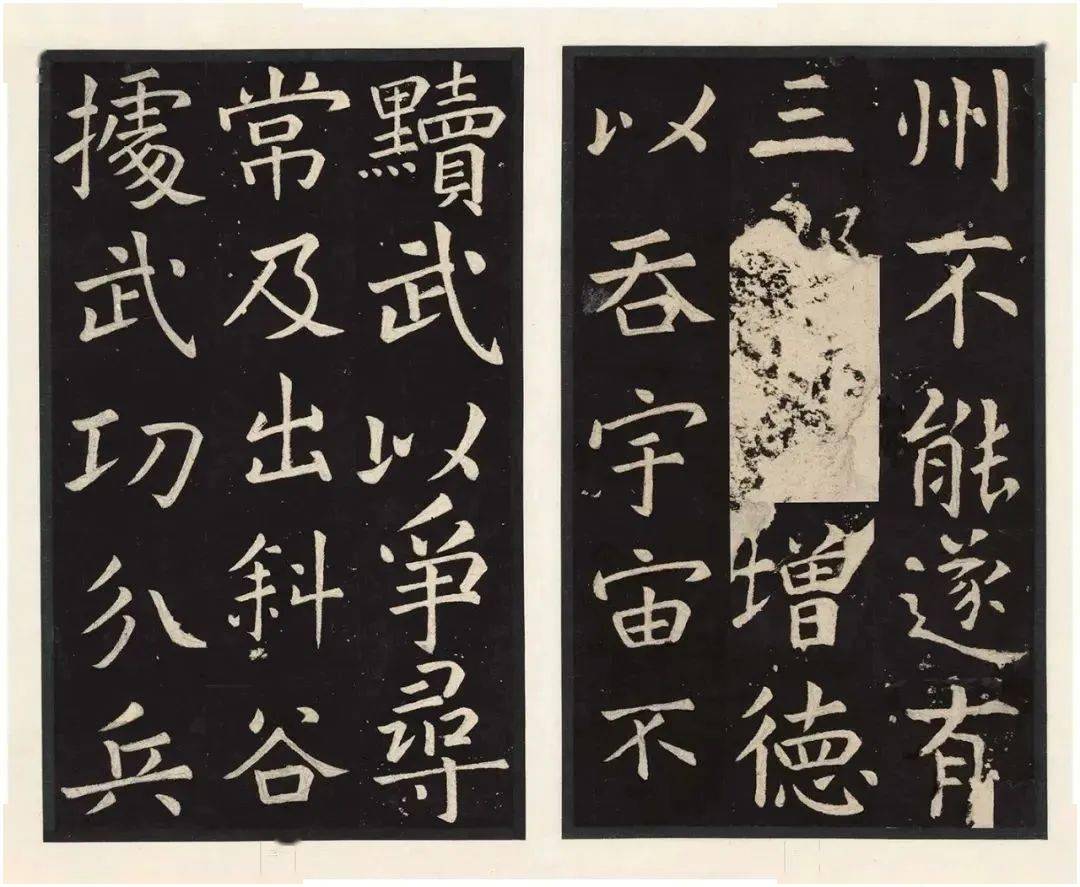 州不能遂有
三增德
以吞宇宙不
黷武以爭尋
常及出斜谷
據武功分兵